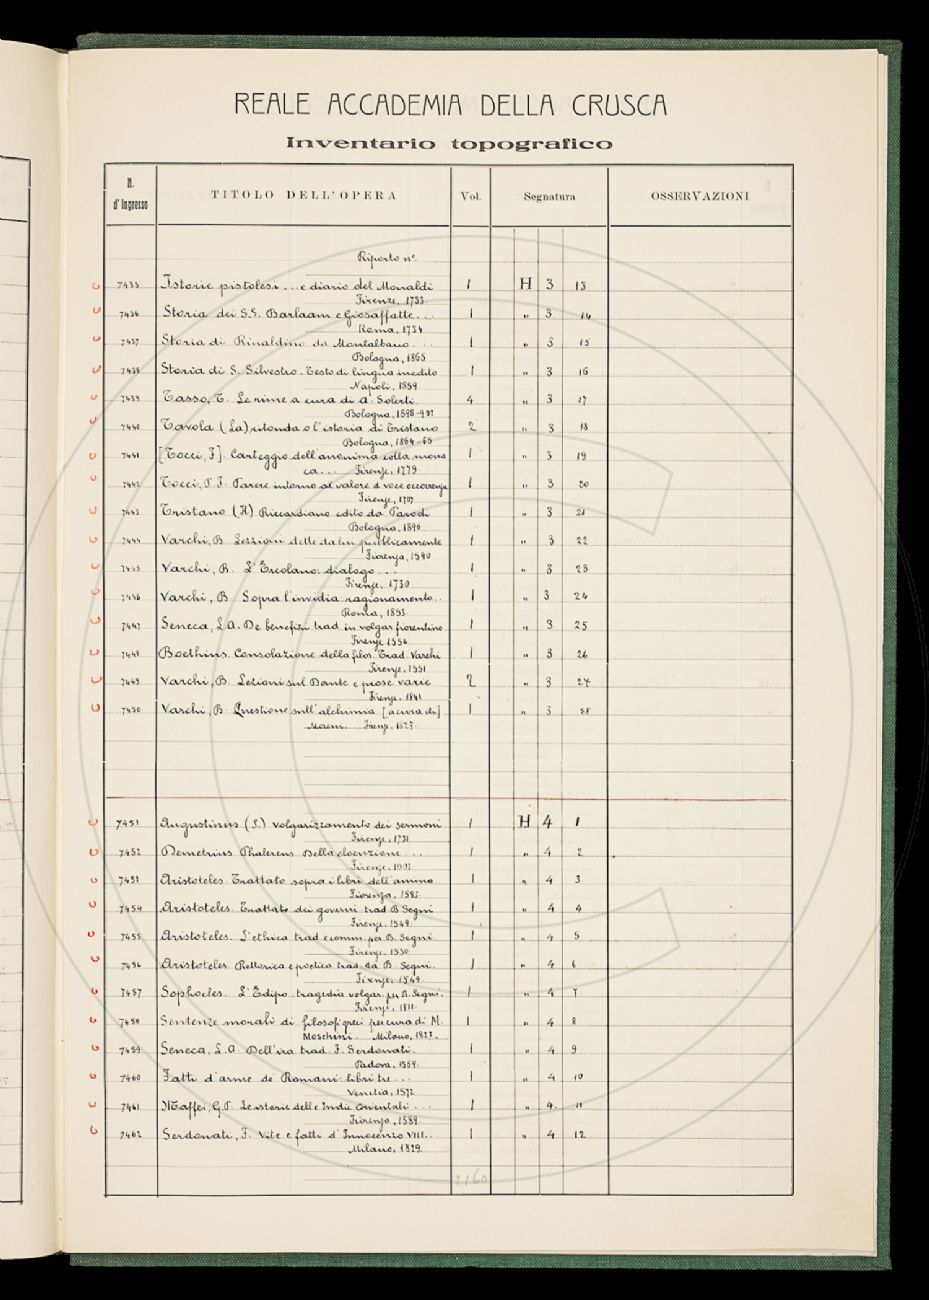 REALE ACCADEMIA DELLA CRUSCA
Inventario topografico
N. d'Ingresso TITOLO DELL'OPERA Vol. Segnatura OSSERVAZIONI
Riporto n°
7435 Istorie pistolesi... e diario del Monaldi 1 H 3 13
Firenze, 1733
7436 Storia dei S.S. Barlaam e Giosaffatte... 1 " 3 14
Roma, 1734
7437 Storia di Rinaldino da Montalbano... 1 " 3 15
Bologna, 1865
7438 Storia di S. Silvestro. Testo di lingua inedito 1 " 3 16
Napoli, 1859
7439 Tasso, T. Le rime a cura di A. Solerti. 4 " 3 17
Bologna, 1898-902
7440 Tavola (La) ritonda o l'istoria di Tristano 2 " 3 18
Bologna, 1864-65
7441 [Tocci, F.] Carteggio dell'anonimo colla mona 1 " 3 19
ca... Firenze, 1779
7442 Tocci, P. F. Parere intorno al valore d. voce occorrenza 1 " 3 20
Firenze, 1707
7443 Tristano (Il) Riccardiano edito da Parodi 1 " 3 21
Bologna, 1896
7444 Varchi, B. Lezzioni dette da lui pubblicamente 1 " 3 22
Fiorenza, 1590
7445 Varchi, B. L'Ercolano: dialogo... 1 " 3 23
Firenze, 1730
7446 Varchi, B. Sopra l'invidia: ragionamento.. 1 " 3 24
Roma, 1853
7447 Seneca, L. A. De benefizi trad. in volgar fiorentino 1 " 3 25
Firenze 1554
7448 Boethius. Consolazione della filos. Trad. Varchi 1 " 3 26
Firenze, 1551
7449 Varchi, B. Lezioni sul Dante e prose varie 2 " 3 27
Firenze, 1841
7450 Varchi, B. Questione sull'alchimia [a cura di] 1 " 3 28
Moreni. Firenze, 1827.
7451 Augustinus (S.) Volgarizzamento dei sermoni 1 H 4 1
Firenze, 1731
7452 Demetrius Phalereus. Della elocuzione... 1 " 4 2
Firenze,
7453 Aristoteles. Trattato sopra i libri dell'anima. 1 " 4 3
Fiorenza, 1583
7454 Aristoteles. Trattato dei governi trad. B. Segni 1 " 4 4
Firenze, 1549
7455 Aristoteles. L'ethica trad. e comm. per B. Segni. 1 " 4 5
Firenze, 1550
7456 Aristoteles. Rettorica e poetica trad. da B. Segni. 1 " 4 6
Firenze, 1549
7457 Sophocles. L'Edipo: tragedia volgar. per B. Segni. 1 " 4 7
Firenze, 1811.
7458 Sentenze morali di filosofi greci per cura di M. 1 " 4 8
Moschini. Milano, 1827.
7459 Seneca, L. A. Dell'ira trad. F. Serdonati. 1 " 4 9
Padova, 1569.
7460 Fatti d'arme de' Romani: libri tre... 1 " 4 10
Venetia, 1572
7461 Maffei, G. P. Le istorie delle Indie Orientali... 1 " 4 11
Fiorenza, 1589.
7462 Serdonati, F. Vite e fatti d'Innocenzo VIII... 1 " 4 12
Milano, 1829.